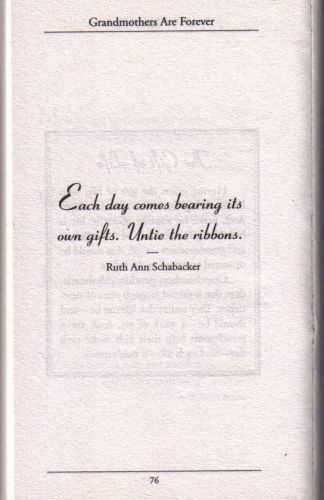 Grandmothers Are Forever
Each day comes bearing its
own gifts. Untie the ribbons.
Ruth Ann Schabacker
76